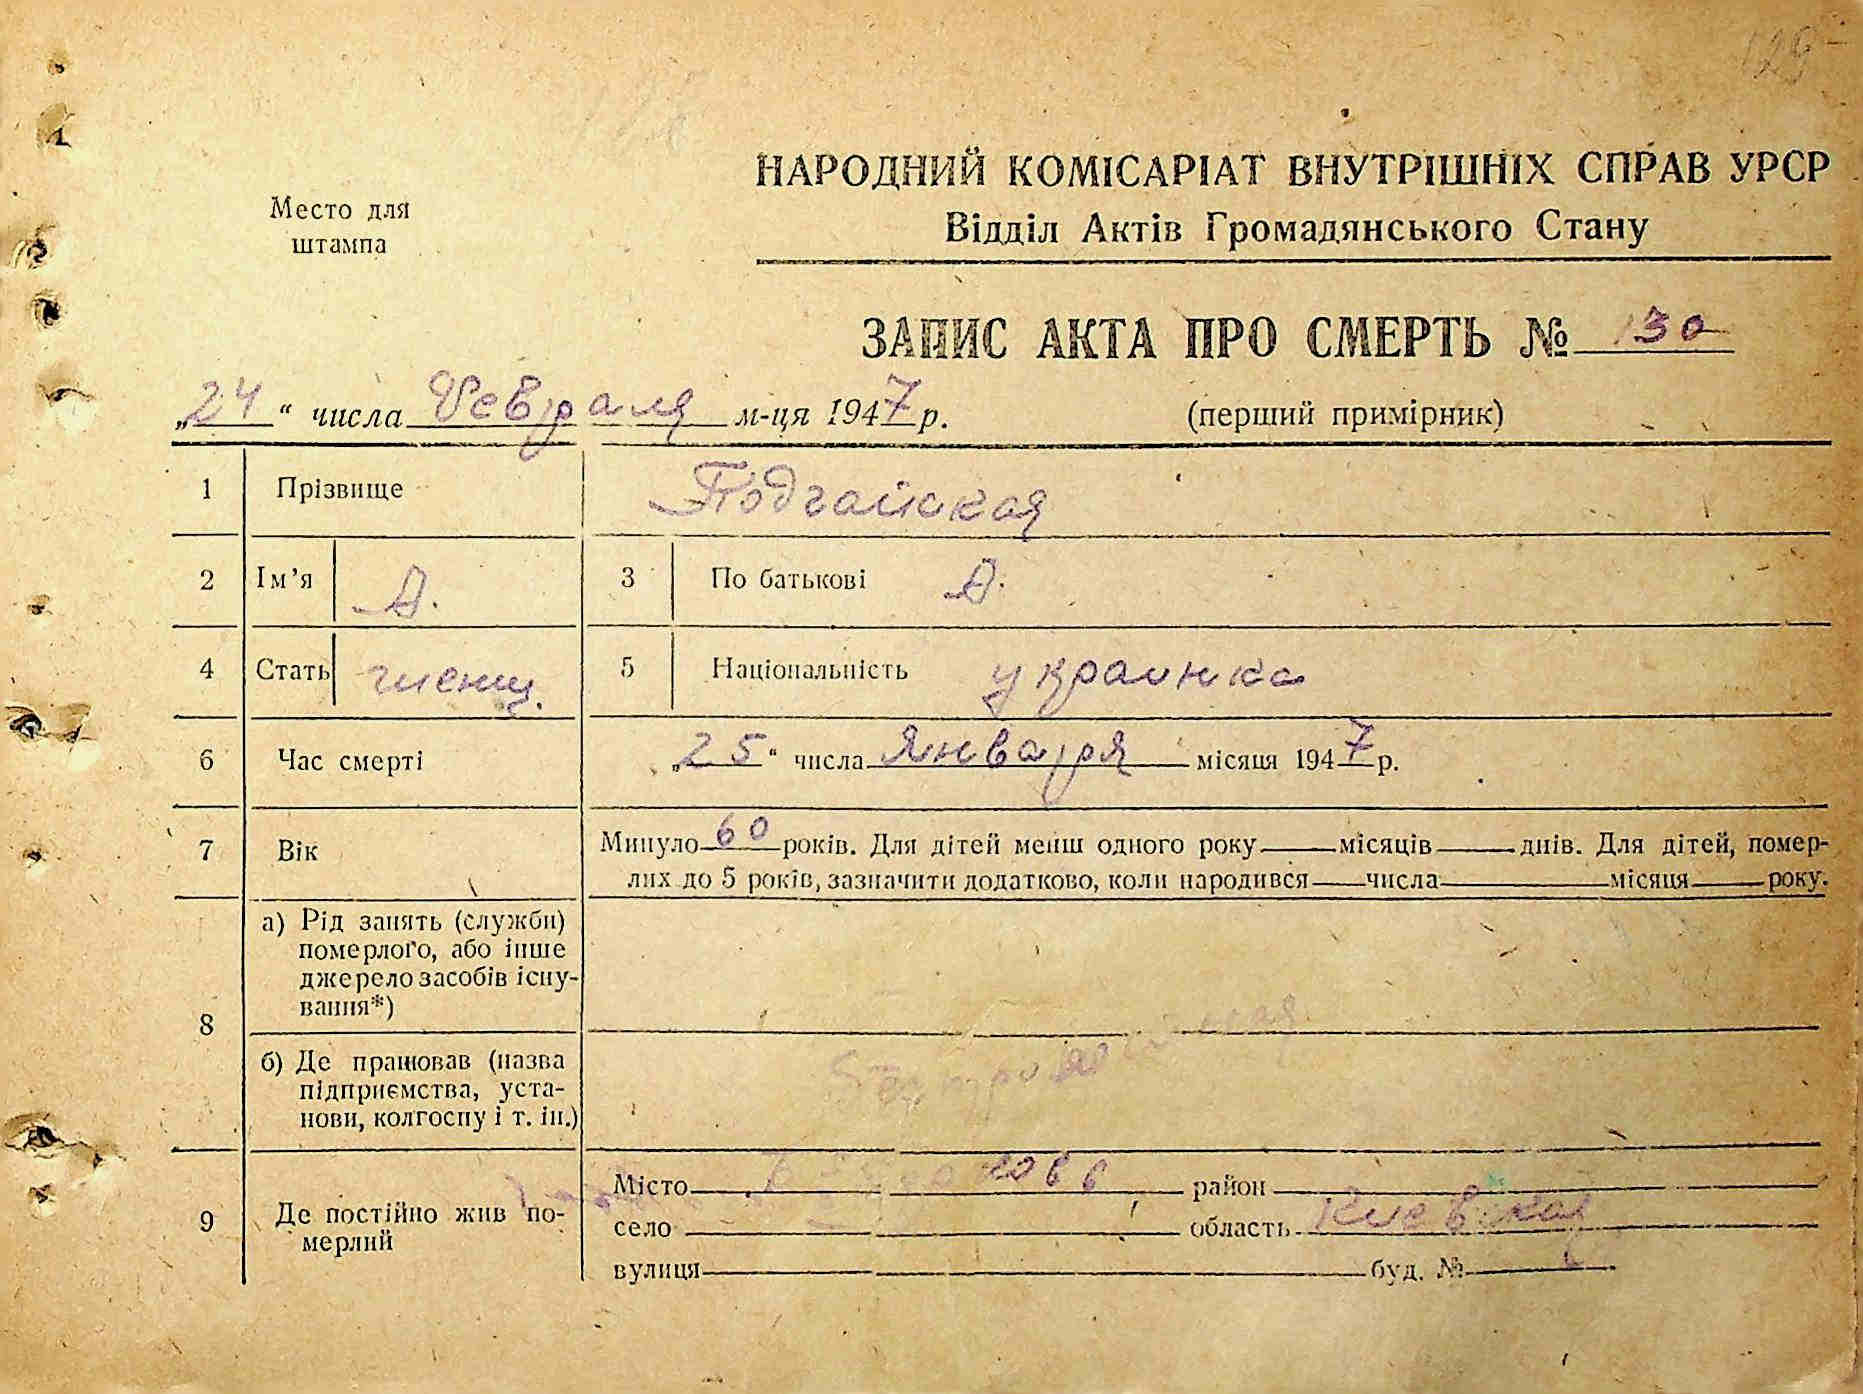 129
Место для
штампа
НАРОДНИЙ КОМІСАРІАТ ВНУТРІШНІХ СПРАВ УРСР
Відділ Актів Громадянського Стану
ЗАПИС АКТА ПРО СМЕРТЬ № 130
„24“ числа Февраля м-ця 1947 р. (перший примірник)
1 Прізвище Подгайская
2 Ім’я А. 3 По батькові А.
4 Стать женщ. 5 Національність украинка
6 Час смерті „25“ числа Января місяця 1947 р.
7 Вік Минуло 60 років. Для дітей менш одного року місяців днів. Для дітей, помер-
лих до 5 років, зазначити додатково, коли народився числа місяця року.
8 а) Рід занять (служби)
померлого, або інше
джерело засобів існу-
вання*)
б) Де працював (назва
підприємства, уста-
нови, колгоспу і т. ін.)
9 Де постійно жив по-
мерлий
Місто район
село область Киевская
вулиця буд. №